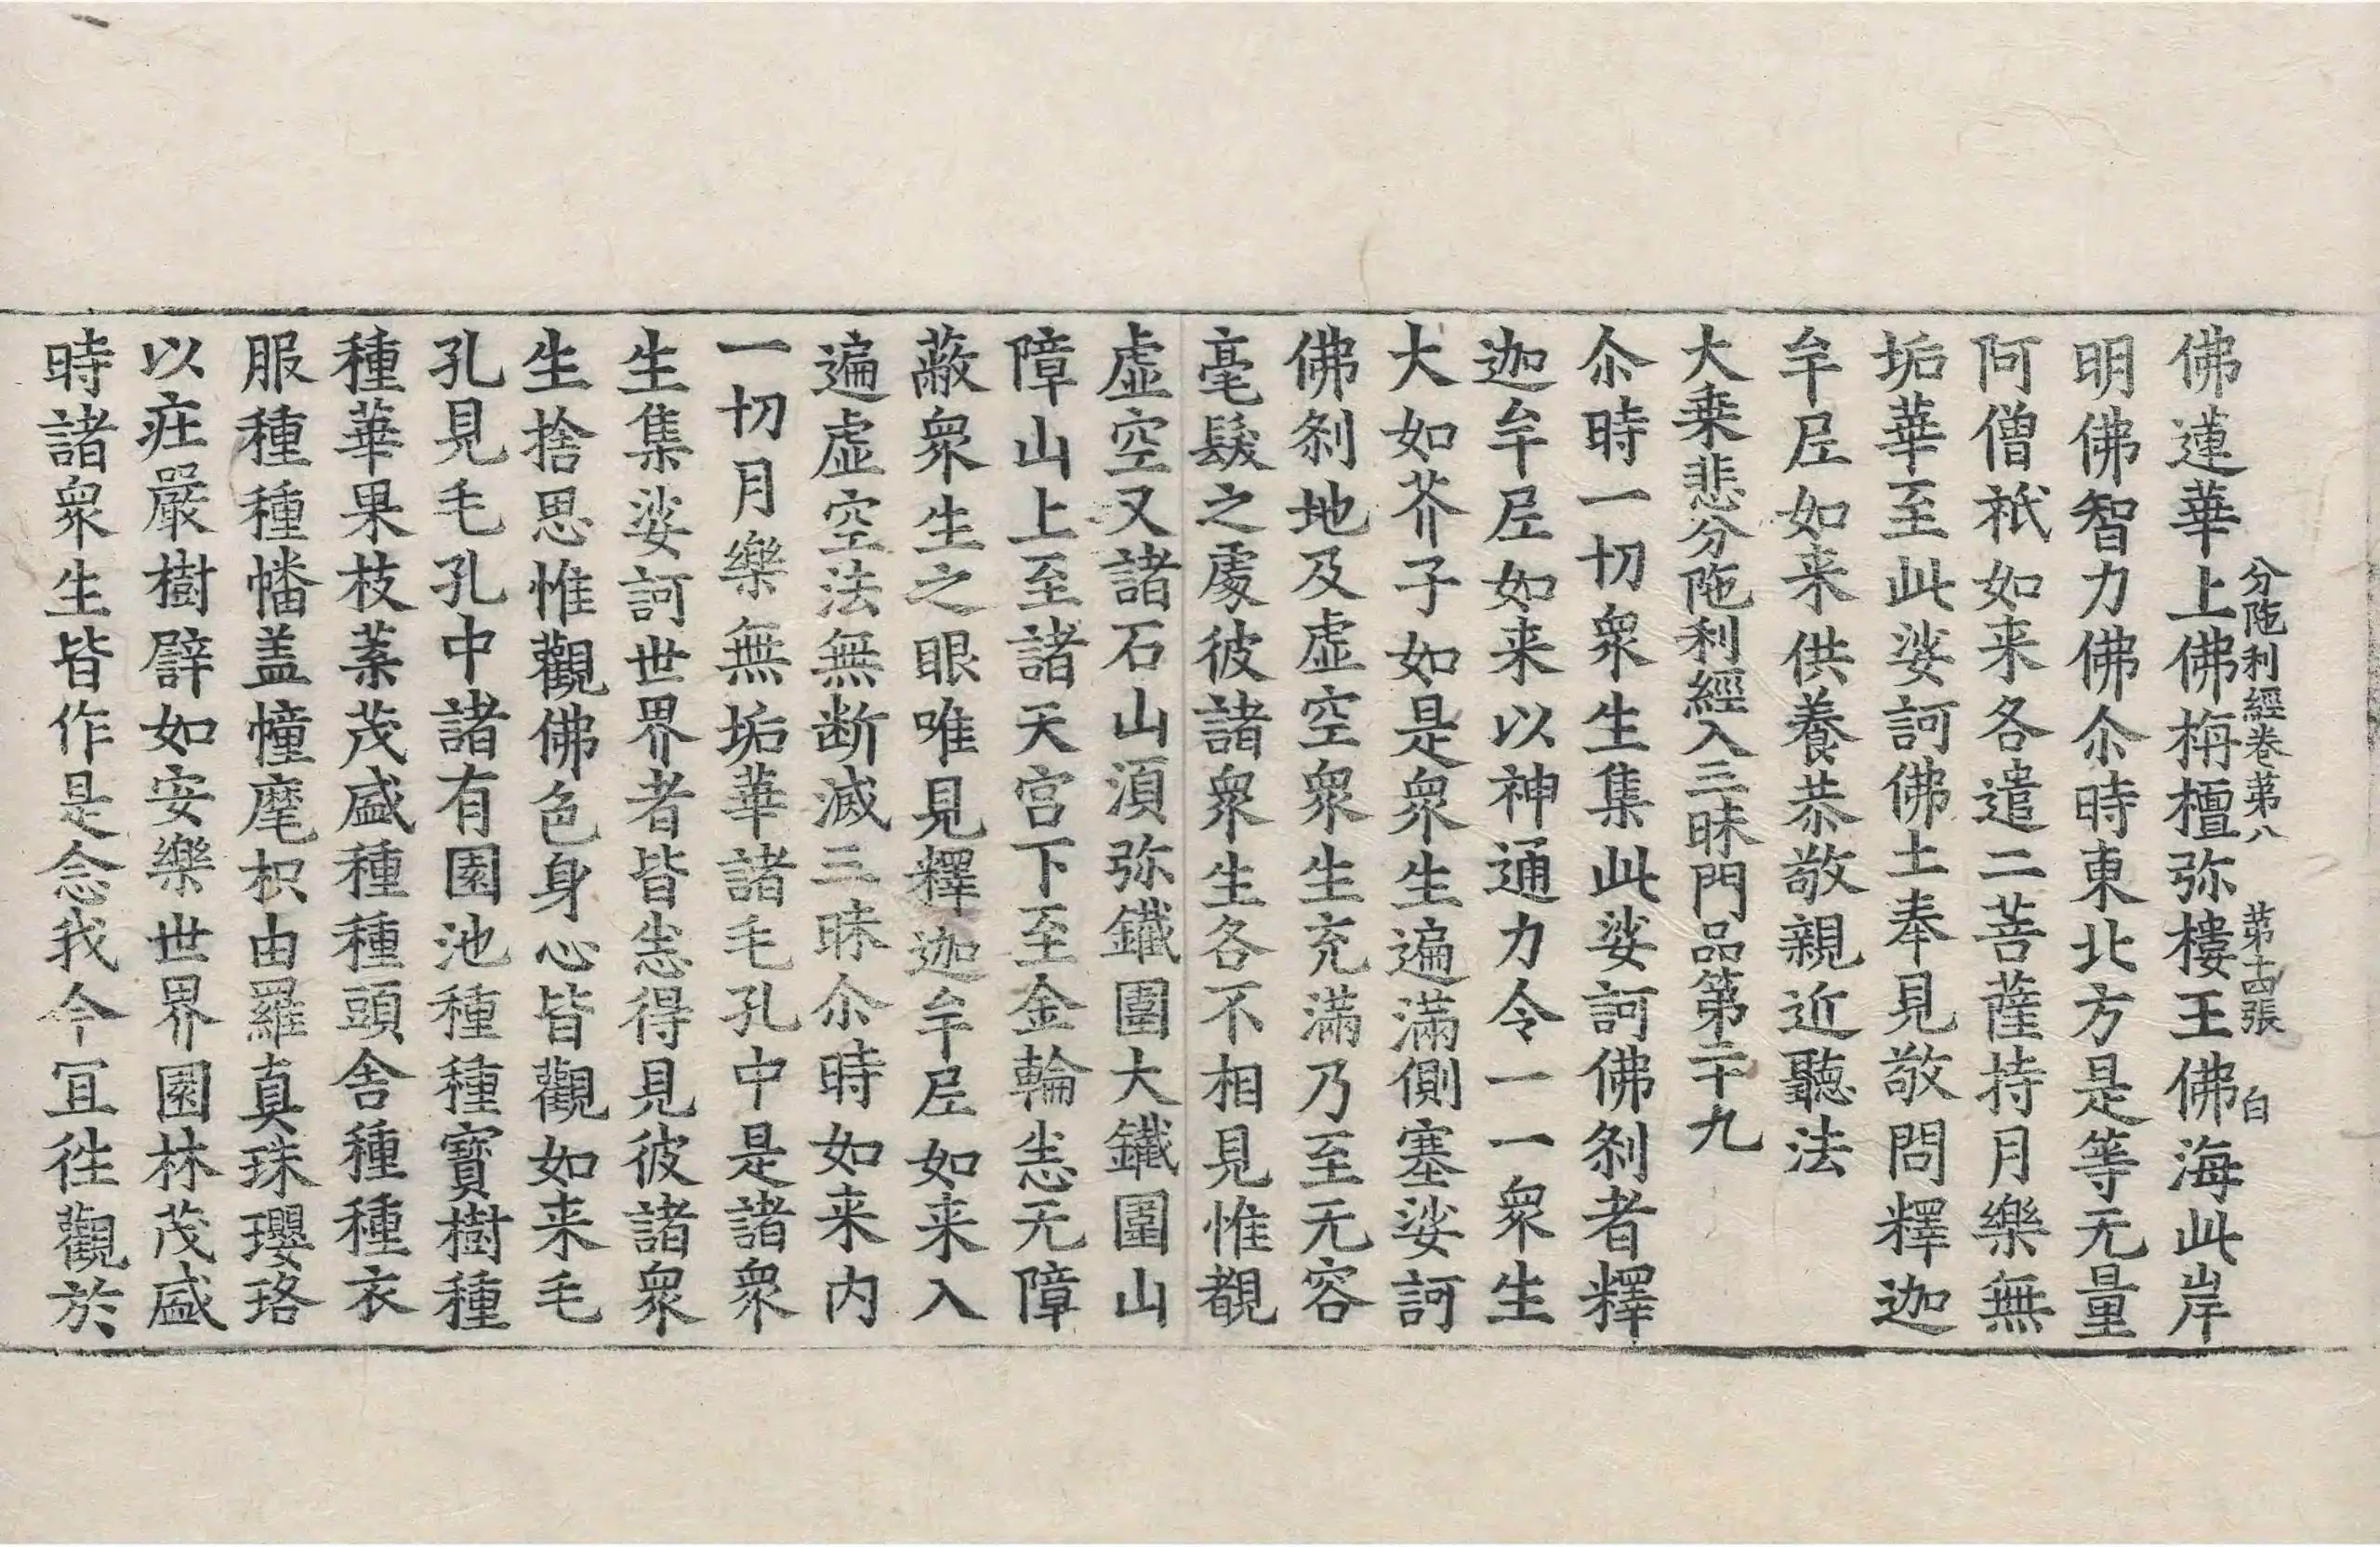 分陁利經卷苐八 苐十四張 白
佛蓮華上佛栴檀弥樓王佛海此岸
明佛智力佛尒時東北方是等无量
阿僧祇如来各遣二菩薩持月樂無
垢華至此娑訶佛土奉見敬問釋迦
牟尼如来供養恭敬親近聽法
大乗悲分陁利經入三昧門品第二十九
尒時一切衆生集此娑訶佛刹者釋
迦牟尼如来以神通力令一一衆生
大如芥子如是衆生遍滿側塞娑訶
佛刹地及虚空衆生充滿乃至无容
毫髮之處彼諸衆生各不相見惟覩
虚空又諸石山湏弥鐵圍大鐵圍山
障山上至諸天宫下至金輪悉无障
蔽衆生之眼唯見釋迦牟尼如来入
遍虚空法無断滅三昧尒時如来内
一切月樂無垢華諸毛孔中是諸衆
生集娑訶世界者皆悉得見彼諸衆
生捨思惟觀佛色身心皆觀如来毛
孔見毛孔中諸有園池種種寳樹種
種華果枝葉茂盛種種頭舎種種衣
服種種幡盖幢麾枳由羅真珠瓔珞
以莊嚴樹譬如安樂世界園林茂盛
時諸衆生皆作是念我今冝徃觀於